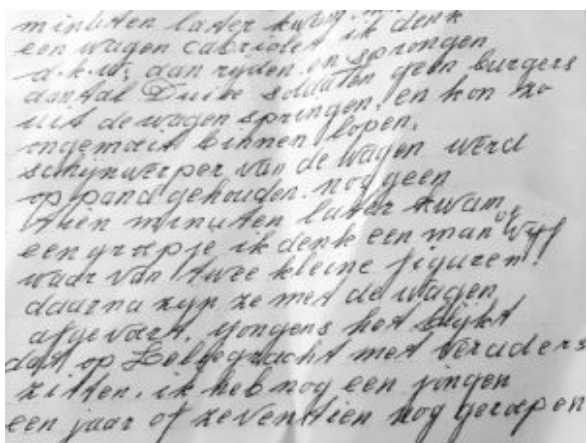 minuten later kwam
een wagen cabriolet ik denk
d.k.w; aan rijden en sprongen
aantal Duitse soldaten geen burgers
uit de wagen springen, en kon zo
ongemoeit binnen lopen,
schijnwerper van de wagen werd
op pand gehouden. nog geen
tien minuten later kwam
een groepje ik denk een man of vijf
waar van twee kleine figuren!
daarna zijn ze met de wagen
afgevoert, yongens het blijkt
dat op Leliegracht met veruders
zitten, ik heb nog een jongen
een jaar of zeventien nog geroepen